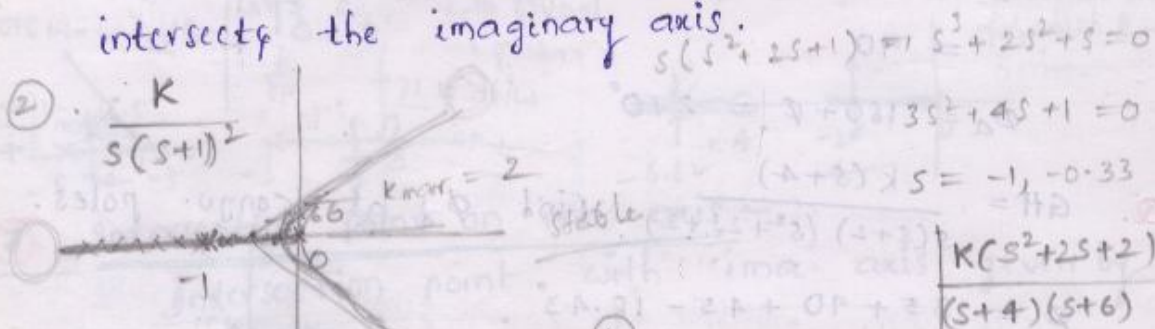 intersects the imaginary axis.
s(s²+2s+1)=0 ⇒ s³+2s²+s=0
② . K / s(s+1)²
3s²+4s+1=0
s = -1, -0.33
Kmar = 2
stable
-1
0
K(s²+2s+2) / (s+4)(s+6)